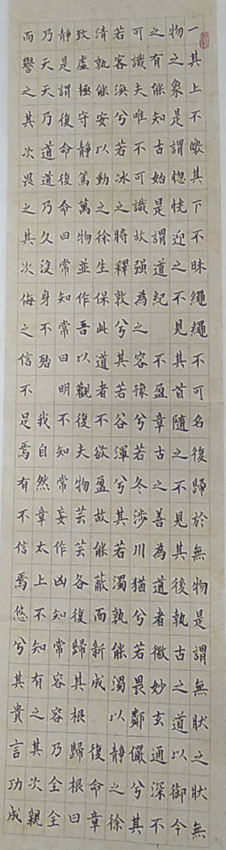 一其上不皦其下不昧繩繩不可名復歸於無物是謂無狀之狀無
物之象是謂惚恍迎之不見其首隨之不見其後執古之道以御今
之有能知古始是謂道紀 不盈章古之善為道者微妙玄通深不
可識夫唯不可識故强為之容豫兮若冬涉川猶兮若畏鄰儼兮其
若客渙兮若冰之將釋敦兮其若谷渾兮其若濁孰能濁以靜之徐
清孰能安以動之徐生保此道者不欲盈故能蔽而新成 復命章
致虛極守靜篤萬物並作吾以觀復夫物芸芸各復歸其根歸根曰
靜是謂復命復命曰常知常曰明不知常妄作凶知常容容乃全全
乃天天乃道道乃久沒身不殆 我自然章太上不知有之其次親
而譽之其次畏之其次侮之信不足焉有不信焉悠兮其貴言功成